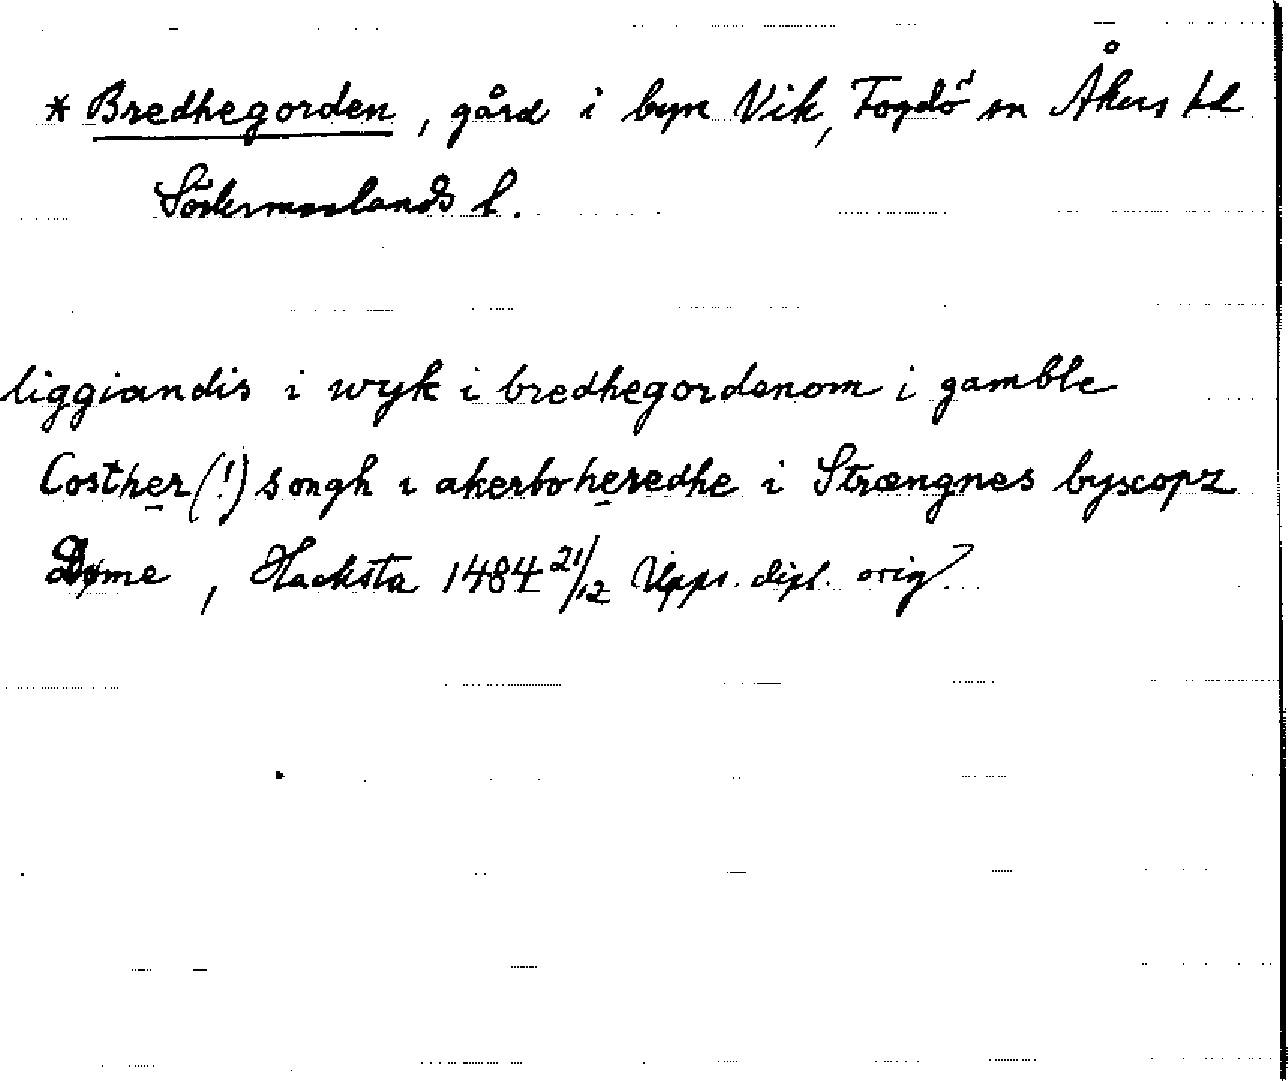 * Bredhegorden, gård i byn Vik, Fogdö sn Åkers hd
Södermanlands l.
liggiandis i wyk i bredhegordenom i gamble
Costher (!) songh i akerboheredhe i Strængnes byscopz
Døme, Hacksta 1484 21/12 Upps. dipl. orig